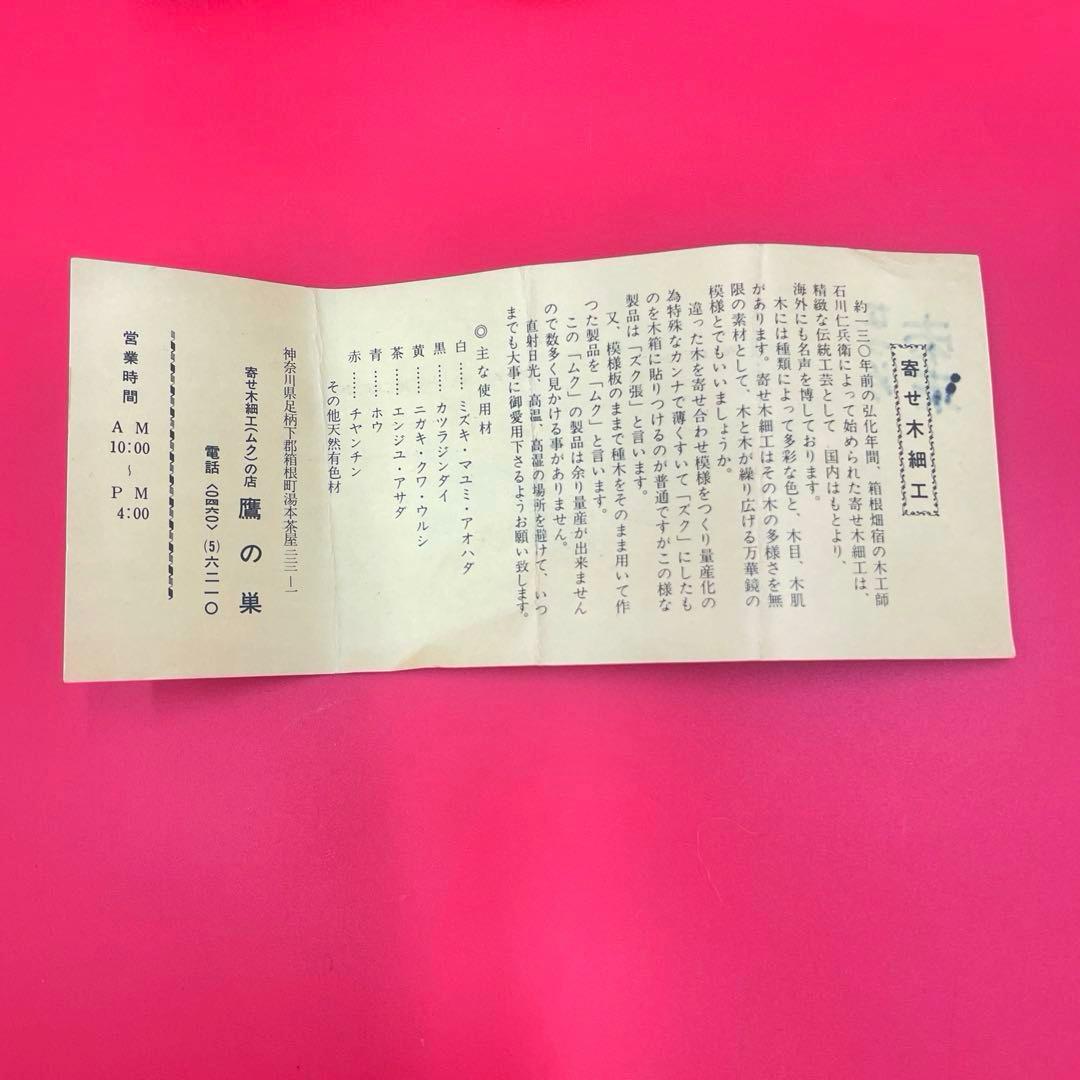 寄せ木細工
約一三〇年前の弘化年間、箱根畑宿の木工師
石川仁兵衛によって始められた寄せ木細工は、
精緻な伝統工芸として、国内はもとより、
海外にも名声を博しております。
木には種類によって多彩な色と、木目、木肌
があります。寄せ木細工はその木の多様さを無
限の素材として、木と木が繰り広げる万華鏡の
模様とでもいいましょうか。
違った木を寄せ合わせ模様をつくり量産化の
為特殊なカンナで薄くすいて「ズク」にしたも
のを木箱に貼りつけるのが普通ですがこの様な
製品は「ズク張」と言います。
又、模様板のままで種木をそのまま用いて作
つた製品を「ムク」と言います。
この「ムク」の製品は余り量産が出来ません
ので数多く見かける事がありません。
直射日光、高温、高湿の場所を避けて、いつ
までも大事に御愛用下さるようお願い致します。
◎主な使用材
白……ミズキ・マユミ・アオハダ
黒……カツラジンダイ
黄……ニガキ・クワ・ウルシ
茶……エンジユ・アサダ
青……ホウ
赤……チヤンチン
その他天然有色材
神奈川県足柄下郡箱根町湯本茶屋三三―一
寄せ木細工(ムク)の店 鷹の巣
電話〈〇四六〇〉(5)六二一〇
営業時間 AM10:00～PM4:00